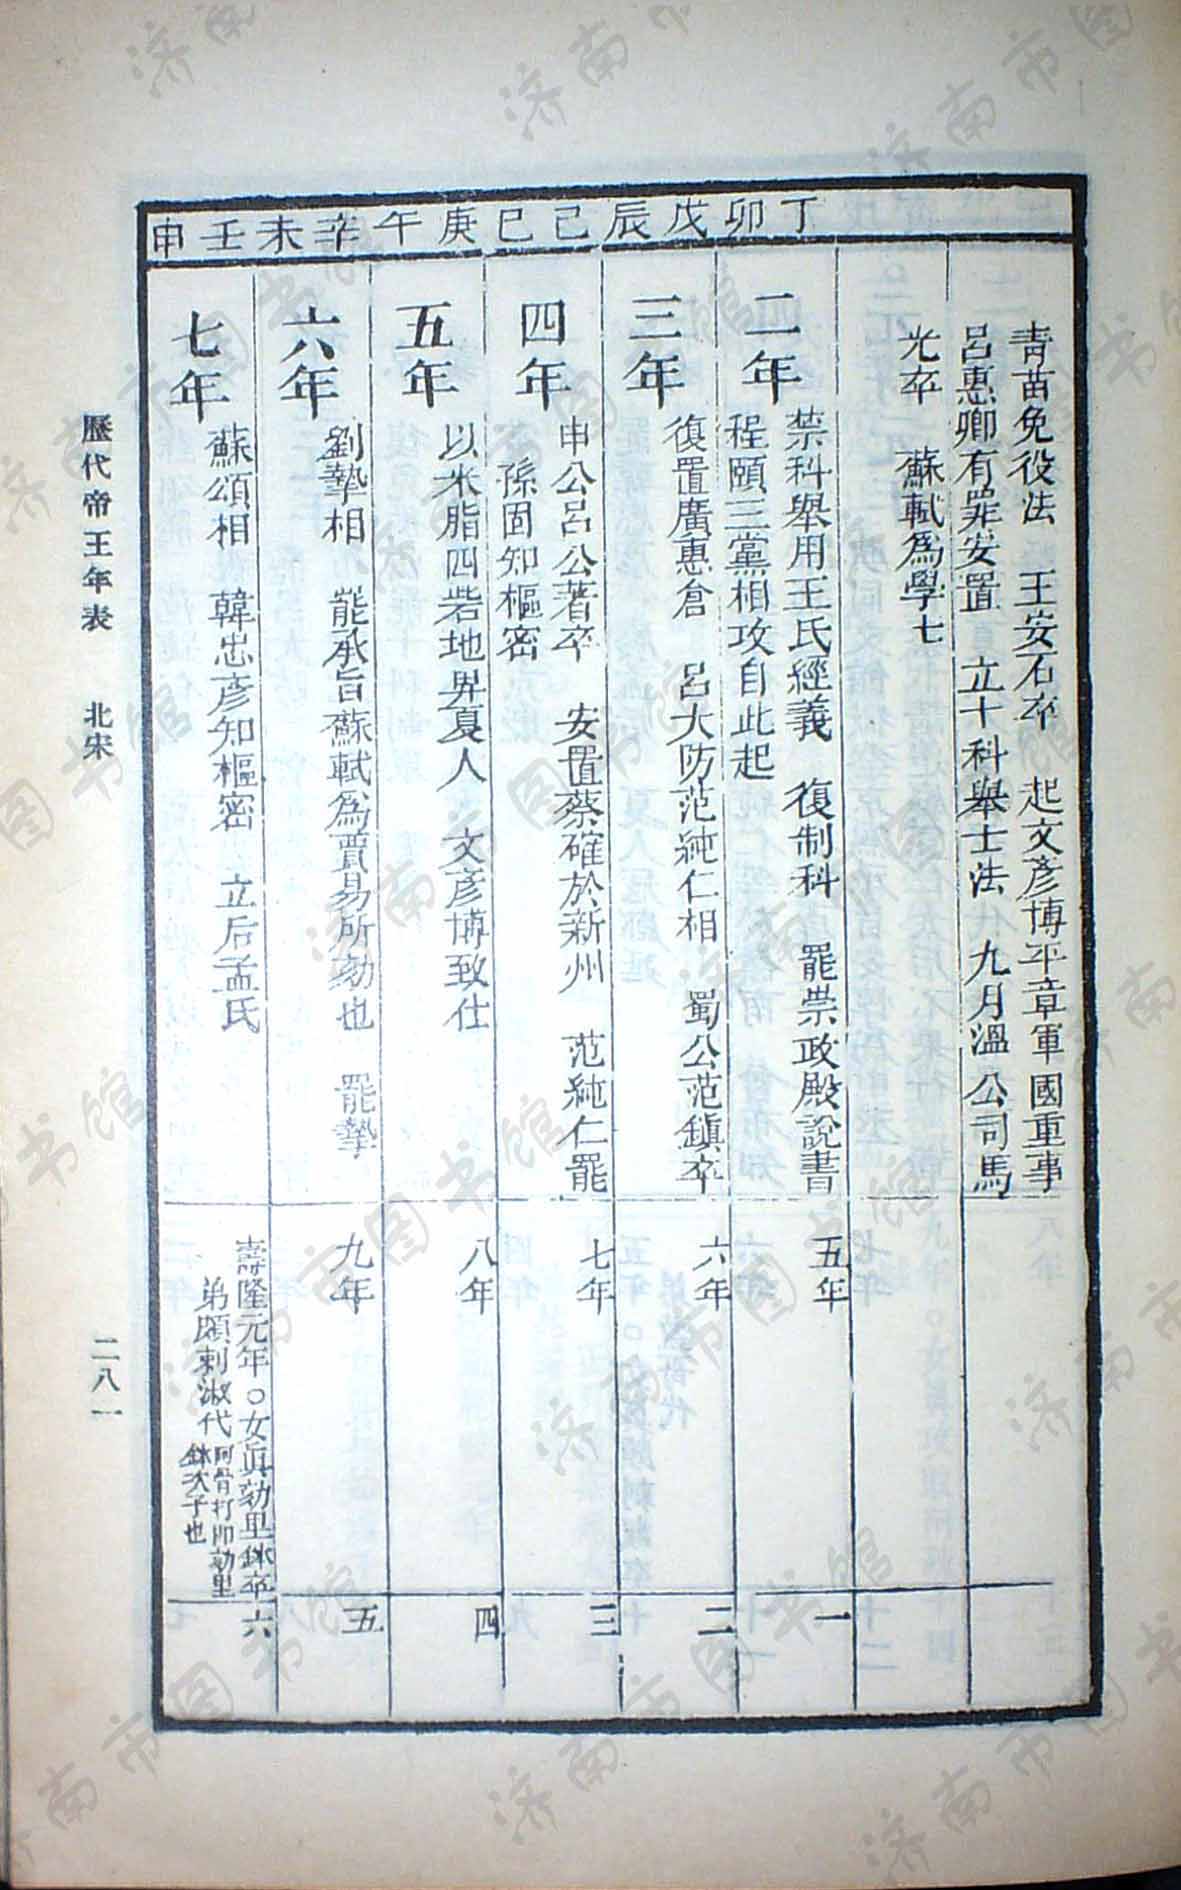 青苗免役法　王安石卒　起文彥博平章軍國重事
呂惠卿有罪安置　立十科舉士法　九月溫公司馬
光卒　蘇軾爲學士
丁卯
二年
禁科舉用王氏經義　復制科　罷崇政殿說書
程頤三黨相攻自此起
五年
一
戊辰
三年
復置廣惠倉　呂大防范純仁相　蜀公范鎮卒
六年
二
己巳
四年
申公呂公著卒　安置蔡確於新州　范純仁罷
孫固知樞密
七年
三
庚午
五年
以米脂四砦地畀夏人　文彥博致仕
八年
四
辛未
六年
劉摯相　罷承旨蘇軾爲賈易所劾也　罷摯
九年
五
壬申
七年
蘇頌相　韓忠彥知樞密　立后孟氏
壽隆元年○女眞劾里鉢卒
弟頗剌淑代
阿骨打卽劾里
鉢次子也
六
歷代帝王年表　北宋
二八一
济南市图书馆